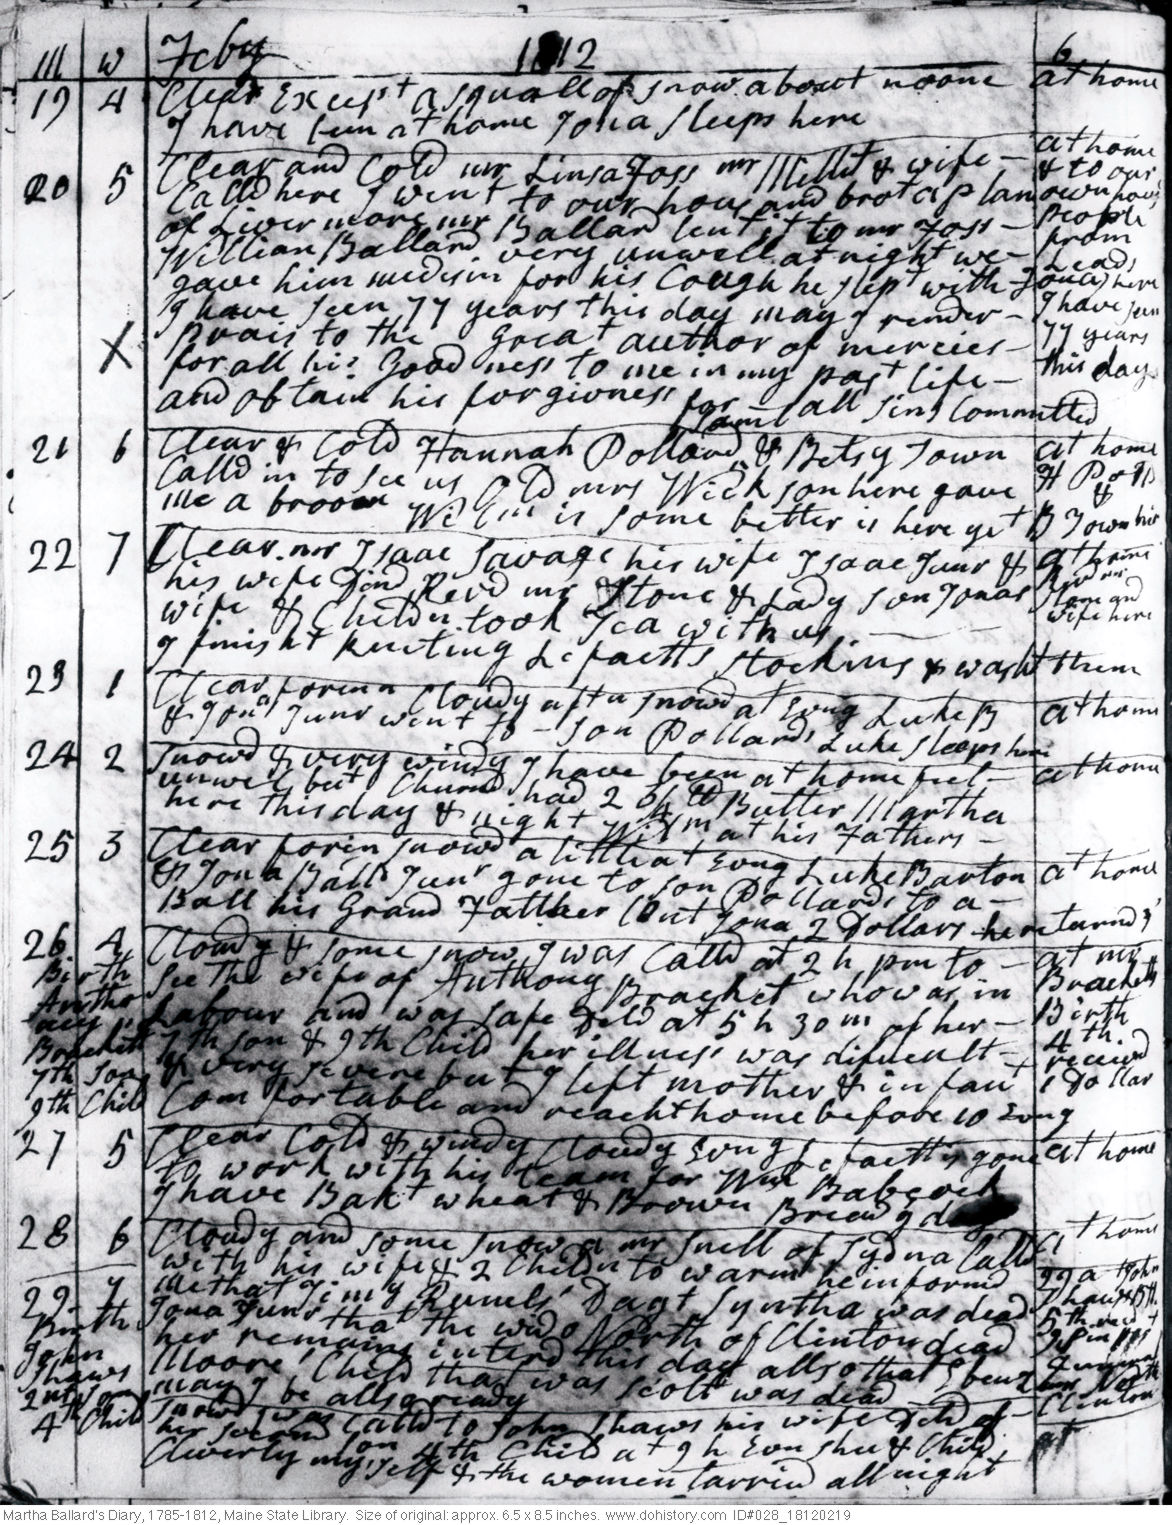 m w Feby 1812 6
19 4 Clear Except a squall of snow about noone at home
I have been at home Jona sleeps here
20 5 Clear and Cold mr Linsa Foss mr Millet & wife – at home
Calld here I went to our hous and brot a plan & to our own hous
of Livermore mr Ballard lent it to mr Foss – People
William Ballard very unwell at night we – from Leads
gave him medisin for his Cough he slept with Jona here
I have seen 77 years this day may I render – I have seen
X prais to the Great author of mercies – 77 years
for all his Good ness to me in my past life – this day
and obtain his forgivness for all sins Committed
21 6 Clear & Cold Hannah Pollard & Betsy Town at home
Calld in to see us Old mrs Wickson here gave H Pold &
me a broom Willm is some better is here yet B Town hir
22 7 Clear. mr Isaac Savage his wife Isaac Junr & at home
his wife Dind Revd mr Stone & Lady son Jonas Revd mr
wife & Childn took Tea with us. Stone and wife here
I finisht knitting Lefaetts stockins & washt them
23 1 Clear foren Cloudy aftn snowd at Evng Luke B at home
& Jona Junr went to – son Pollards Luke sleeps here
24 2 snowd & very windy I have been at home feel – at home
unwell but Churnd had 2 lb Butter Martha
here this day & night Willm at his Fathers –
25 3 Clear foren snowd a little at Evng Luke Barton at home
& Jona Ball Junr gone to son Pollards to a –
Ball his Grand Father lent Jona 2 Dollars he returnd
26 4 Cloudy & some snow I was Calld at 2 h pm to – at mr
Birth see the wife of Anthony Bracket who was in Bracketts
Labour and was safe Deld at 5 h 30 m of her – Birth
7th son & 9th Child her illness was dificult – 4th
7th son & very severe but I left mother & infant received
9th Child Comfortable and reacht home before 10 Evng 1 Dollar
27 5 Clear Cold & windy Cloudy Evng Lefaett is gone at home
to work with his team for Wm Babcock
I have Bakt wheat & Brown Bread
28 6 Cloudy and some snow a mr Snell of Sydna Calld at home
with his wife & 2 Childn to warm he informd
29 7 me that Jimy Dagt Syntha was dead
Birth Jona Junr that the wido North of Clinton dead
John her remains interd this day allso that Ebenz
Shaws Moore Child that was scolt was dead
2nd son may I be allso ready Clinton
4th Child snowd I was Calld to John Shaws his wife Deld of – at
her second son 4th Child at 9 h Evn shee & Child
Cleverly my self & the women tarried all night
Martha Ballard's Diary, 1785-1812, Maine State Library. Size of original: approx. 6.5 x 8.5 inches. www.dohistory.com ID#028_18120219